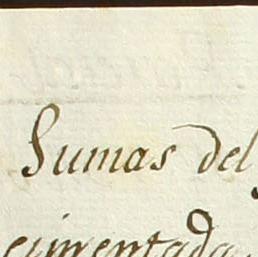 Sumas del
cimentada